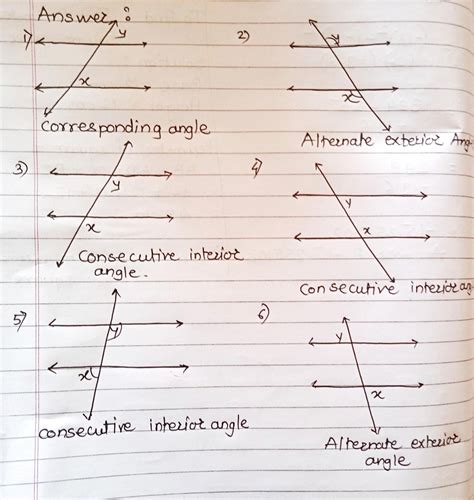 Answer :
1) y 2) y
x x
Corresponding angle Alternate exterior Ang
3) y 4) y
x x
Consecutive interior
angle. Consecutive interior an
5) y 6) y
x x
Consecutive interior angle Alternate exterior
angle